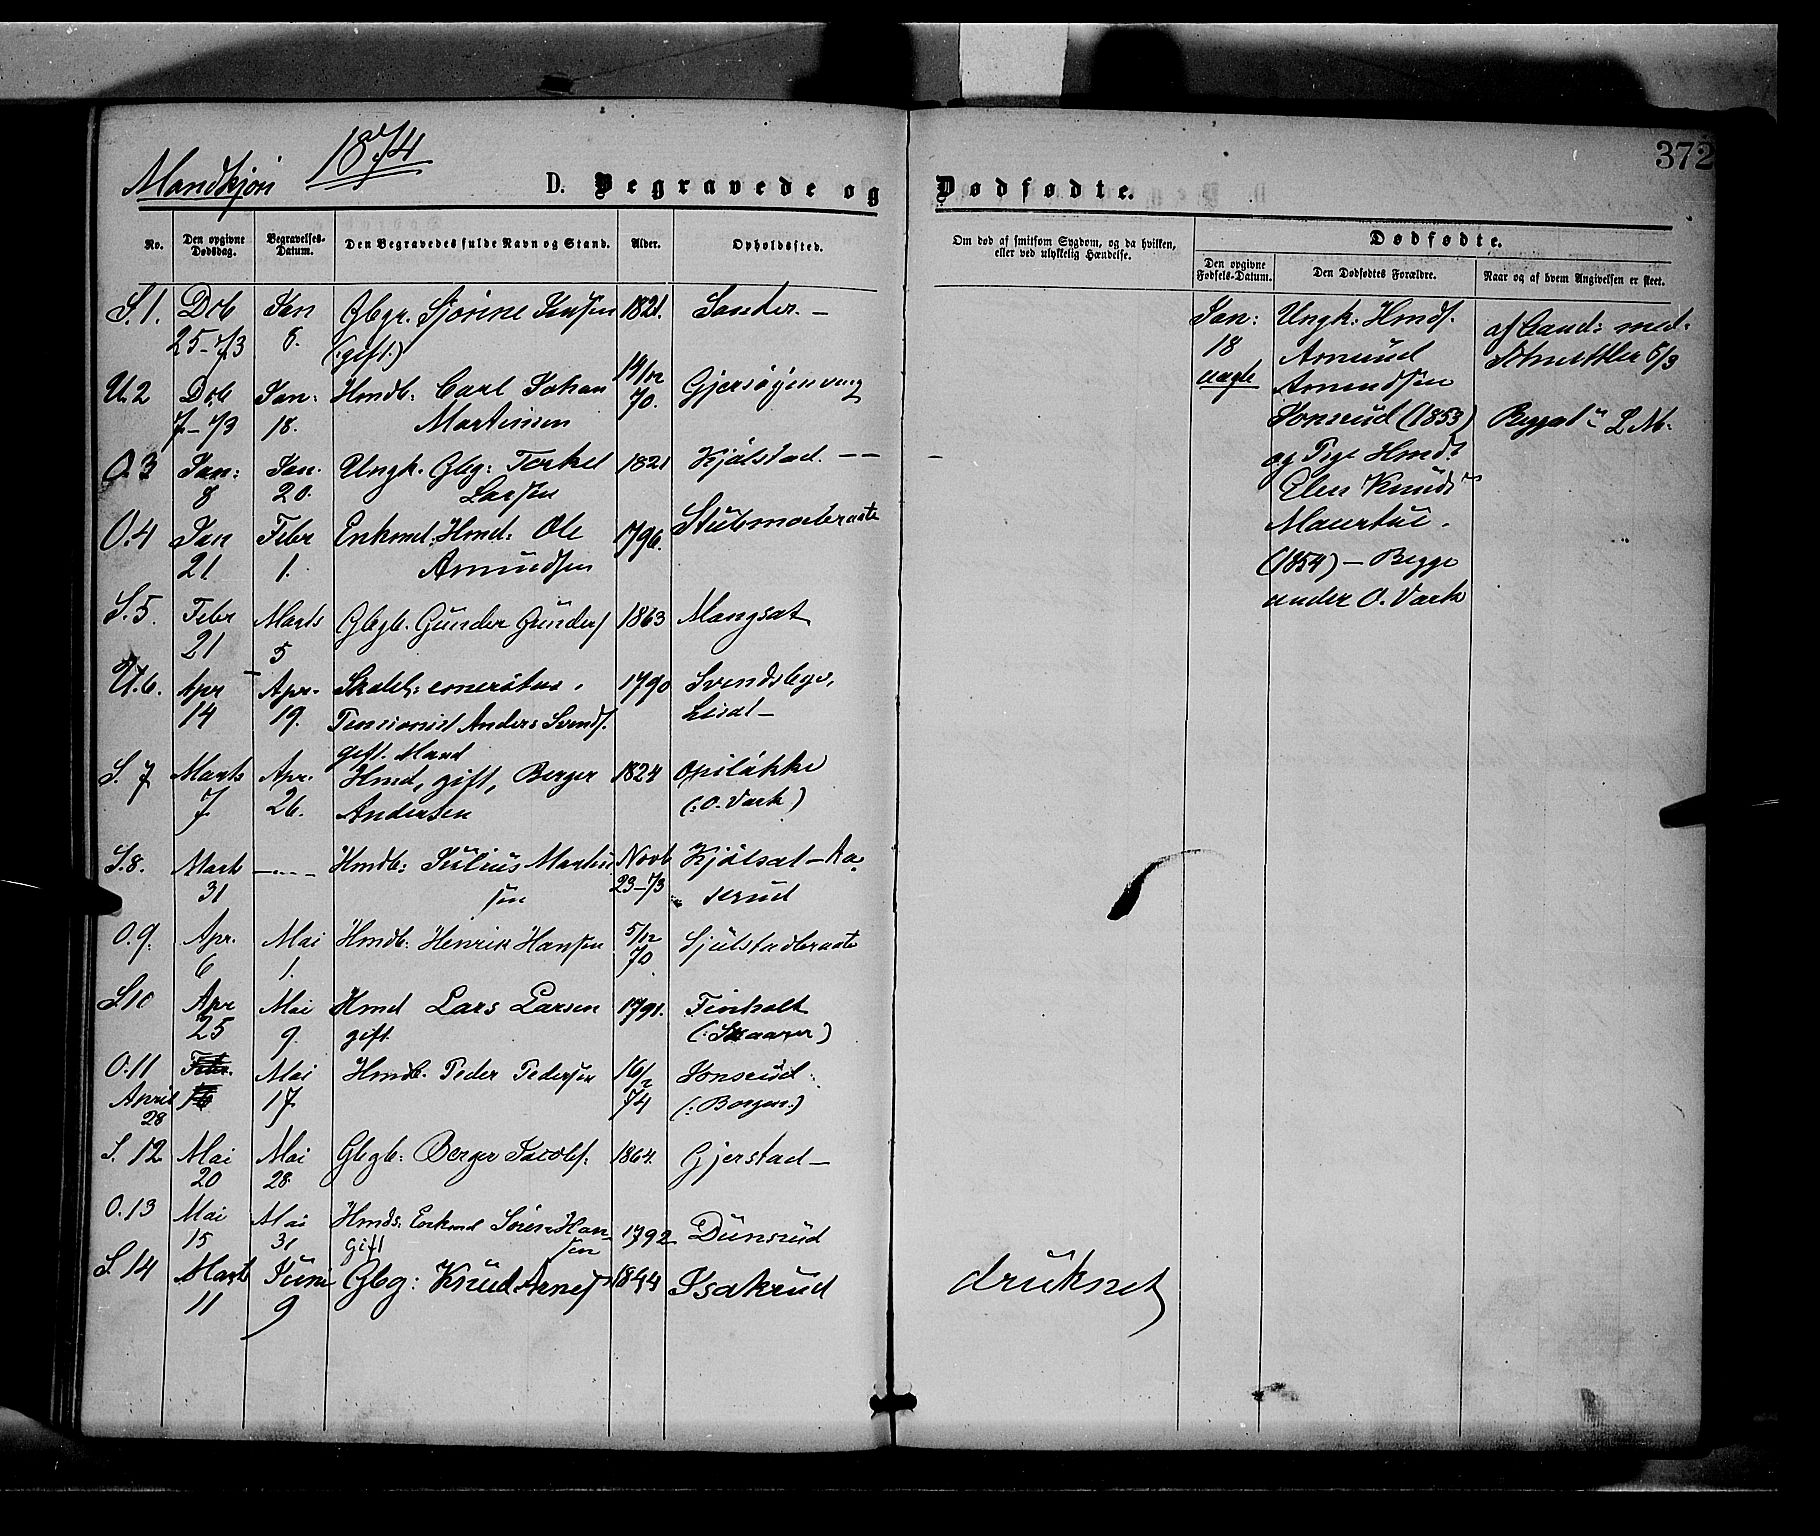 372
Mandkjön 1874
D. Begravede og Dødfødte.
No.
Den opgivne Dødsdag.
Begravelses-Datum.
Den Begravedes fulde Navn og Stand.
Alder.
Opholdssted.
Om død af smitsom Sygdom, og da hvilken, eller ved ulykkelig Hændelse.
Dødfødte.
Den opgivne Fødsels-Datum.
Den Dødfødtes Forældre.
Naar og af hvem Angivelsen er skeet.
S. 1. Dcb Jan Gbgr. 1821. Sander. –
25-73 6. (gift.)
U. 2 Dcb Jan: Hmdb: Carl Johan 14/12 70.
7-73 18. Martinsen
O. 3 Jan: Jan. Ungk. Gbg: Torkel 1821 Kjölstad. – –
8 20. Larsen
O. 4 Jan Febr Enkmd: Hmd: Ole 1796.
21 1. Amundsen
S. 5. Febr Marts Gbgb. Gunder Gunders 1863 Mangset
21 5
U. 6. Apr Apr. 1790 Svendsbye,
14 19. Pensionist Anders Svends.
gift. Mand
S. 7 Marts Apr. Hmd, gift, Berger 1824 Opsløkke
7 26. Andersen (:O. Vark)
S. 8. Marts – – Hmdb: Julius Martin Novb
31 sen 23-73 serud
O. 9. Apr. Mai Hmdb: Henrik Hansen 5/12
6 1. 70.
S. 10 Apr Mai Hmd Lars Larsen 1791. Finholt
25 9. gift. (:Skaarer)
O. 11 Febr. Mai Hmdb. Peder Pedersen 16/2 Jonsrud.
April 28 16 17. 74 (:Borgen:)
S. 12 Mai Mai Gbgb: Berger Jacobs. 1864. Gjerstad –
20 28.
O. 13 Mai Mai Hmds: Enkmd Sören Han- 1792 Dunsrud
15 31 gift sen
S. 14 Marts Juni Gbg: Knud Arnes 1844 Isakrud druknet
11 9
Jan: Ungk: Hmds.
18 Amund
uægte Amundsen
Jonsrud (1853)
og Pige Hmds
Elen Knuds
(1854) – Begge
under O. Vark
af Cand: med.
5/3